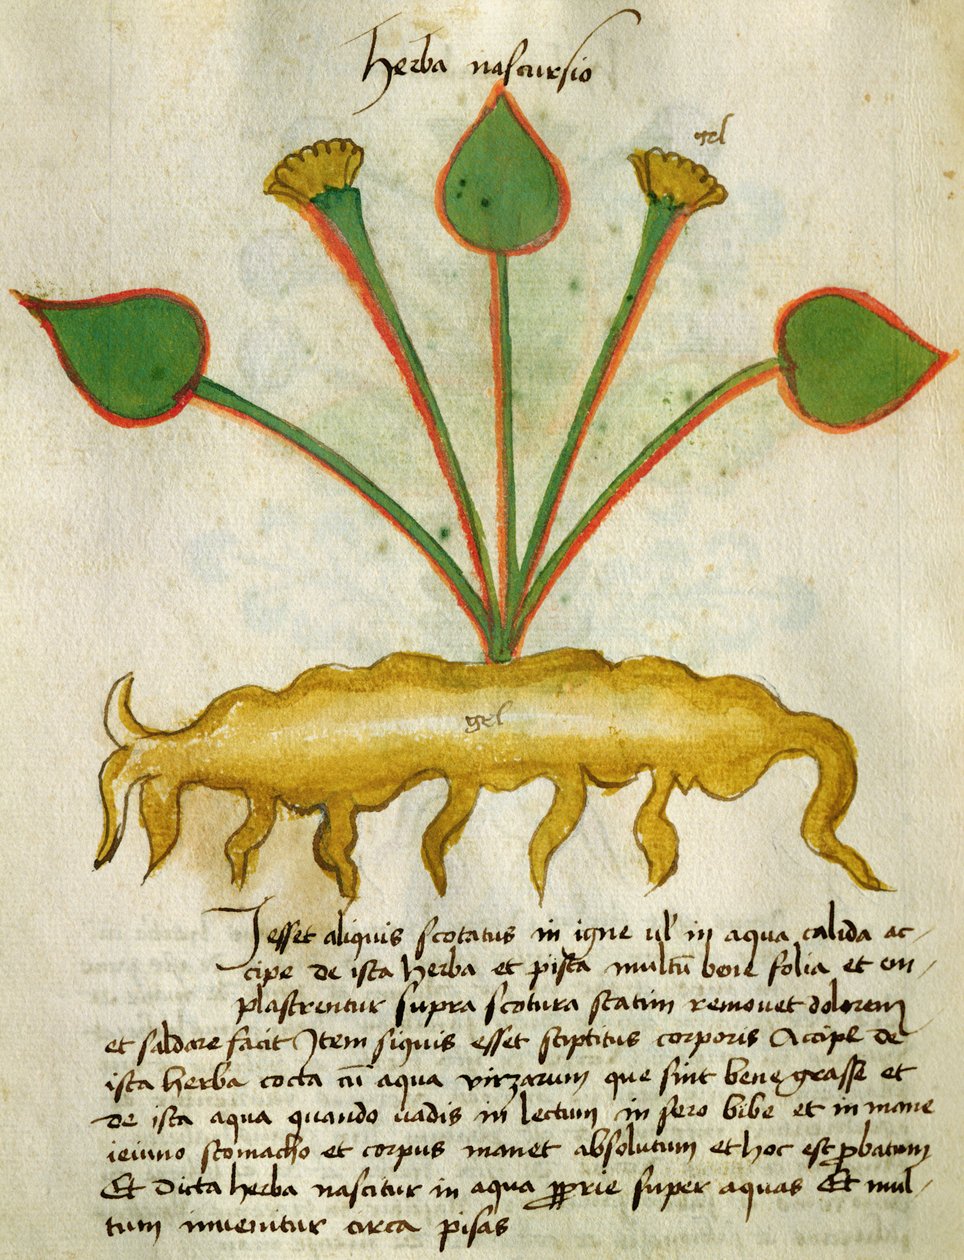 herba nascursio
gel
gel
Iesset aliquis scotatus in igne ul' in aqua calida ac-
cipe de ista herba et pista multũ bene folia et en-
plastrentur supra scotura statim remouet dolorem
et saldare facit Item siquis esset stiptitus corporis Accipe de
ista herba cocta cũ aqua virzarum que sint bene grasse et
de ista aqua quando uadis in lectum in sero bibe et in mane
ieiuno stomacho et corpus manet absolutum et hoc est ꝓbatum
Et dicta herba nascitur in aqua ꝓprie super aquas Et mul-
tum inuenitur circa pisas